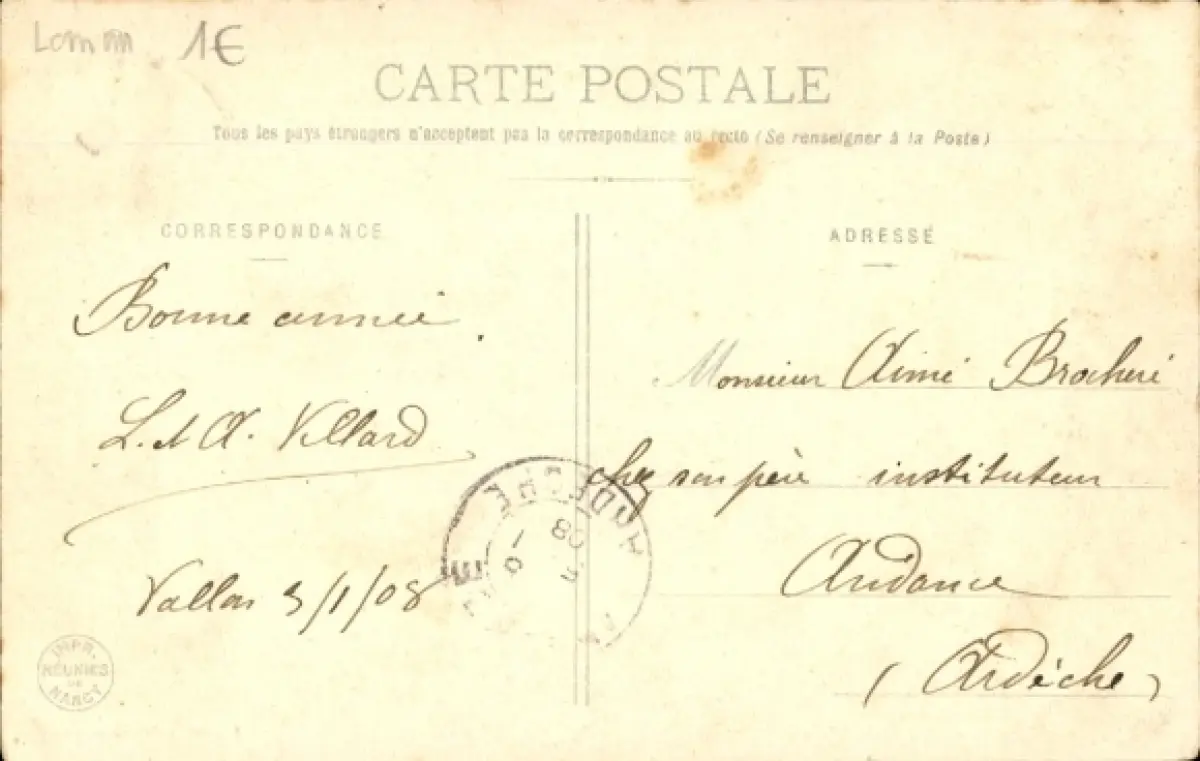 1€
CARTE POSTALE
Tous les pays étrangers n'acceptent pas la correspondance au recto (Se renseigner à la Poste)
CORRESPONDANCE
Bonne année.
L. et A. Villard
Vallon 3/1/08
IMPR.
RÉUNIES
DE
NANCY
ADRESSE
Monsieur Aimé Brocheré
chez son père instituteur
Andance
(Ardèche)
08